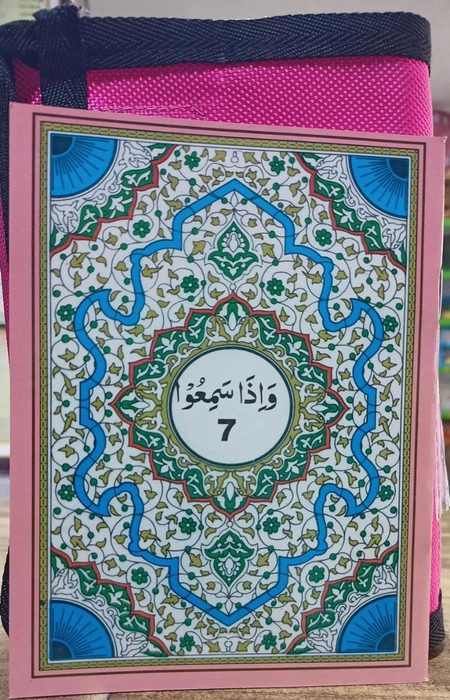 وَاِذَا سَمِعُوْا
7